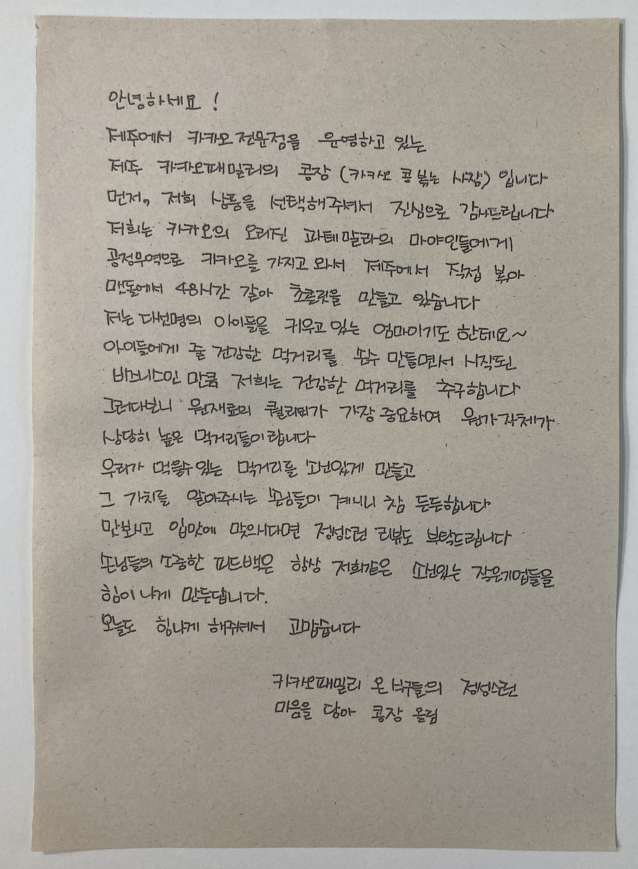 안녕하세요!
제주에서 카카오전문점을 운영하고 있는
제주 카카오패밀리의 콩장 (카카오 콩 볶는 사장) 입니다
먼저, 저희 상품을 선택해주셔서 진심으로 감사드립니다
저희는 카카오의 오리진 과테말라의 마야인들에게
공정무역으로 카카오를 가지고 와서 제주에서 직접 볶아
맷돌에서 48시간 갈아 초콜릿을 만들고 있습니다
저는 다섯명의 아이들을 키우고 있는 엄마이기도 한데요~
아이들에게 줄 건강한 먹거리를 손수 만들면서 시작된
비즈니스인 만큼 저희는 건강한 먹거리를 추구합니다
그러다보니 원재료의 퀄리티가 가장 중요하여 원가자체가
상당히 높은 먹거리들이랍니다
우리가 먹을수 있는 먹거리를 소신있게 만들고
그 가치를 알아주시는 손님들이 계시니 참 든든합니다
맛보시고 입맛에 맞으시다면 정성스런 리뷰도 부탁드립니다
손님들의 소중한 피드백은 항상 저희같은 소신있는 작은기업들을
힘이나게 만든답니다.
오늘도 힘나게 해주셔서 고맙습니다
카카오패밀리 온 식구들의 정성스런
마음을 담아 콩장 올림